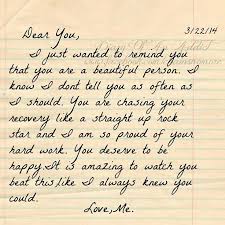 3/22/14
Dear You,
I just wanted to remind you
that you are a beautiful person. I
know I dont tell you as often as
I should. You are chasing your
recovery like a straight up rock
star and I am so proud of your
hard work. You deserve to be
happy. It is amazing to watch you
beat this like I always knew you
could.
Love, Me.